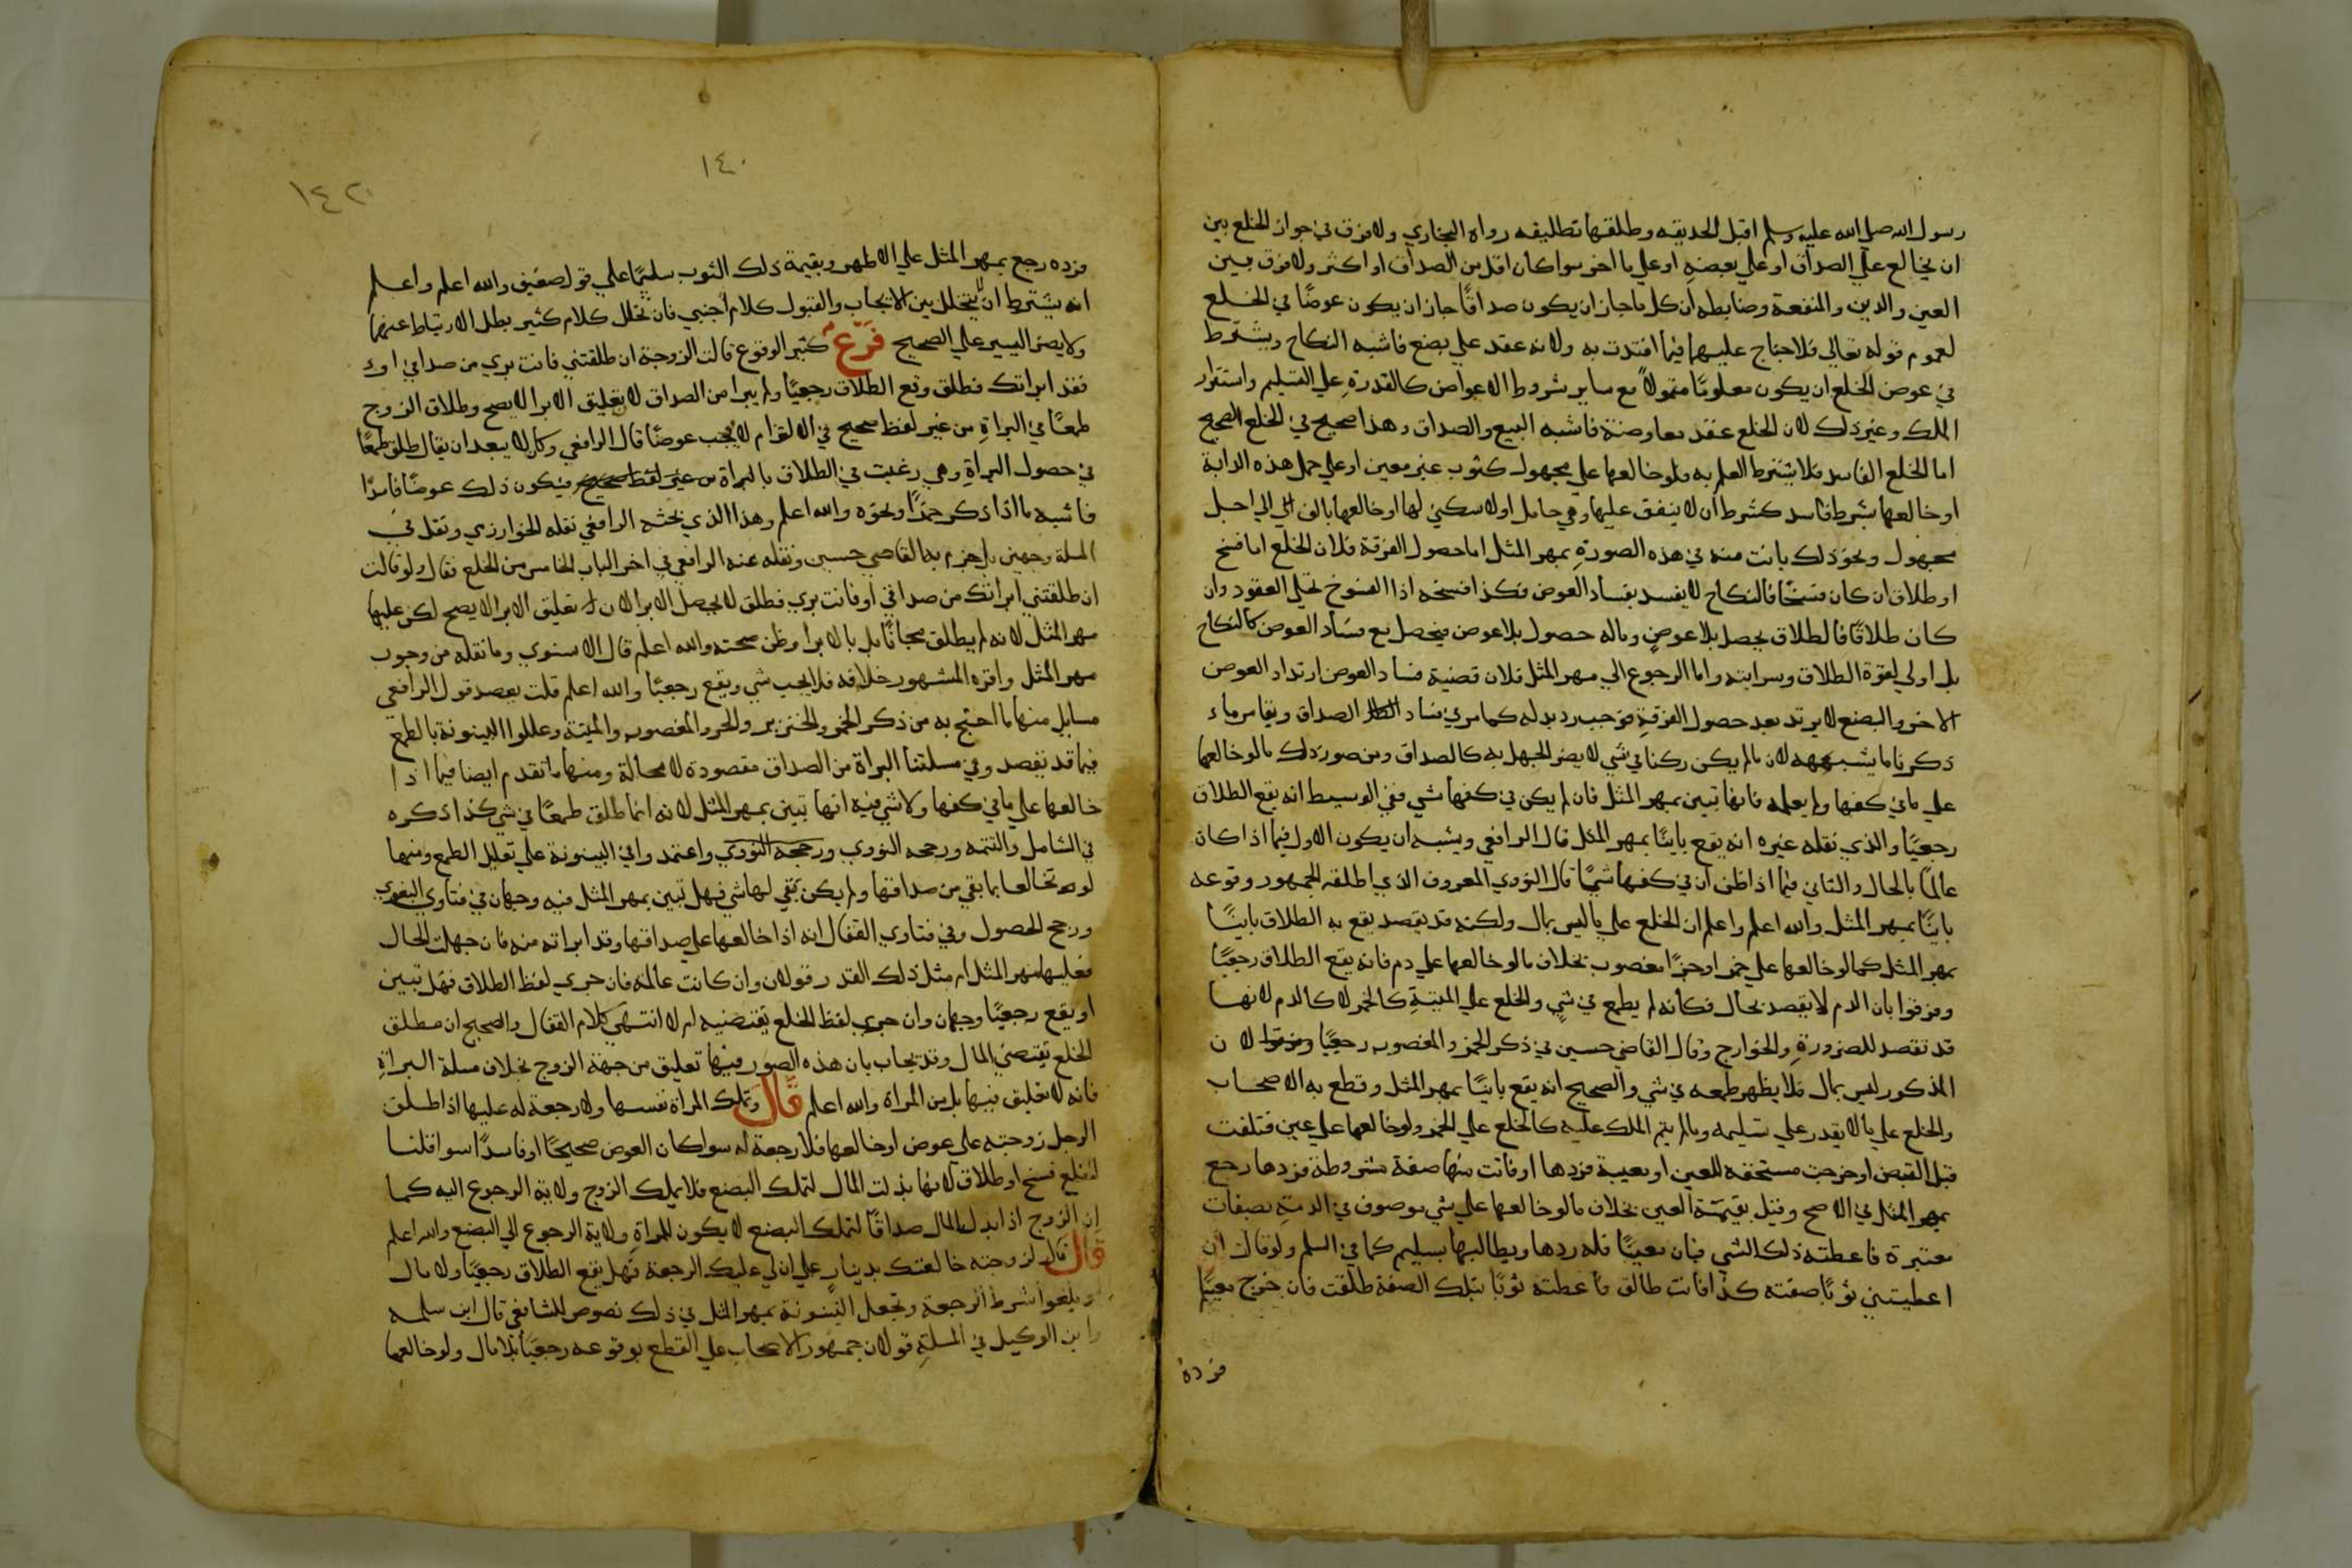 رسول الله صلى الله عليه وسلم اقبل الحديقه وطلقها تطليقه رواه البخاري ولا فرق في جواز الخلع بين
ان يخالع علي الصداق او علي بعضه او علي ما اخر سوا كان اقل من الصداق او اكثر ولا فرق بين
العين والدين والمنفعة وضابطه ان كل ما جاز ان يكون صداقا جاز ان يكون عوضا في الخلع
لعموم قوله تعالي فلا جناح عليهما فيما افتدت به ولانه عقد علي بضع فاشبه النكاح ويشترط
في عوض الخلع ان يكون معلوما متمولا مع ساير شروط الاعواض كالقدرة علي التسليم واستقرار
الملك وغير ذلك لان الخلع عقد معاوضة فاشبه البيع والصداق وهذا صحيح في الخلع الصحيح
اما الخلع الفاسد فلا يشترط العلم به فلو خالعها علي مجهول كثوب غير معين او علي حمل هذه الدابة
او خالعها بشرط فاسد كشرط ان لا ينفق عليها وهي حامل او لا سكني لها او خالعها بالف الي اجل
مجهول ونحو ذلك بانت منه في هذه الصورة بمهر المثل اما حصول الفرقة فلان الخلع اما فسخ
او طلاق ان كان فسخا فالنكاح لا يفسد بفساد العوض فكذا فسخه اذا الفسوخ تحكي العقود وان
كان طلاقا فالطلاق يحصل بلا عوض وماله حصول بلا عوض فيحصل مع فساد العوض كالنكاح
بل اولي لقوة الطلاق وسرايته واما الرجوع الي مهر المثل فلان قضية فساد العوض ارتداد العوض
الاخر والبضع لا يرتد بعد حصول الفرقة فوجب رد بدله كما مر في فساد الصداق ويقاس بما
ذكرنا ما يشبهه لان ما لم يكن ركنا في شي لا يضر الجهل به كالصداق ومن صور ذلك ما لو خالعها
علي ما في كفها ولم يعلمه فانها تبين بمهر المثل فان لم يكن في كفها شي ففي الوسيط انه يقع الطلاق
رجعيا والذي نقله غيره انه يقع باينا بمهر المثل قال الرافعي ويشبه ان يكون الاول فيما اذا كان
عالما بالحال والثاني فيما اذا ظن ان في كفها شيا قال النووي المعروف الذي اطلقه الجمهور وقوعه
باينا بمهر المثل والله اعلم واعلم ان الخلع علي ما ليس بمال ولكنه قد يقصد يقع به الطلاق باينا
بمهر المثل كما لو خالعها علي خمر او حر او مغصوب بخلاف ما لو خالعها علي دم فانه يقع الطلاق رجعيا
وفرقوا بان الدم لا يقصد بحال فكانه لم يطمع في شي والخلع علي الميتة كالخمر لا كالدم لانها
قد تقصد للضرورة والخوارج وقال القاضي حسين في ذكر الخمر والمغصوب رجعيا لان
المذكور ليس بمال فلا يظهر طمعه في شي والصحيح انه يقع باينا بمهر المثل وقطع به الاصحاب
والخلع علي ما لا يقدر علي تسليمه وما لم يتم الملك عليه كالخلع علي الخمر ولو خالعها علي عين فتلفت
قبل القبض او خرجت مستحقه للعين او معيبة فردها او فاتت منها صفة مشروطة فردها رجع
بمهر المثل في الاصح وقيل بقيمة العين بخلاف ما لو خالعها علي شي موصوف في الذمة بصفات
معتبرة فاعطته ذلك الشي فبان معيبا فله ردها ويطالبها بسليم كما في السلم ولو قال ان
اعطيتني ثوبا صفته كذا فانت طالق فاعطته ثوبا بتلك الصفة طلقت فان خرج معيبا
فرده
١٤٠
١٤٢
فرده رجع بمهر المثل علي الاظهر وبقيمة ذلك الثوب سليما علي قول ضعيف والله اعلم واعلم
انه يشترط ان لا يتخلل بين الايجاب والقبول كلام اجنبي فان تخلل كلام كثير بطل الارتباط عنهما
ولا يضر اليسير علي الصحيح فرع كثير الوقوع قالت الزوجة ان طلقتني فانت بري من صداقي او
فقد ابراتك فطلق وقع الطلاق رجعيا ولم يبرا من الصداق لان تعليق الابرا لا يصح وطلاق الزوج
طمعا في البراة من غير لفظ صحيح في الالتزام لا يوجب عوضا قال الرافعي وكان لا يبعد ان يقال طلق طمعا
في حصول البراة وهي رغبت في الطلاق بالبراة من غير لفظ صحيح فيكون ذلك عوضا فاسدا
فاشبه ما اذا ذكر خمرا ونحوه والله اعلم وهذا الذي بحثه الرافعي نقله الخوارزمي ونقل في
المسلة وجهين بل جزم به القاضي حسين ونقله عنه الرافعي في اخر الباب الخامس من الخلع فقال ولو قالت
ان طلقتني ابراتك من صداقي او فانت بري فطلق لا يحصل الابرا لان تعليق الابرا لا يصح لكن عليها
مهر المثل لانه لم يطلق مجانا بل بالابرا وظن صحته والله اعلم قال الاسنوي وما نقله من وجوب
مهر المثل واقره المشهور خلافه فلا يجب شي ويقع رجعيا والله اعلم قلت يعضد قول الرافعي
مسايل منها ما احتج به من ذكر الخمر والخنزير والحر والمغصوب والميتة وعللوا البينونة بالطمع
فيما قد يقصد وفي مسلتنا البراة من الصداق مقصودة لا محالة ومنها ما تقدم ايضا فيما اذا
خالعها علي ما في كفها ولا شي فيه انها تبين بمهر المثل لانه انما طلق طمعا في شي كذا ذكره
في الشامل والتتمه ورجحه النووي ورجحه النووي واعتمدوا في البينونة علي تعليل الطمع ومنها
لو تخالعا بما بقي من صداقها ولم يكن بقي لها شي فهل تبين بمهر المثل فيه وجهان في فتاوي البغوي
ورجح الحصول وفي فتاوي القفال انه اذا خالعها علي صداقها وقد ابراته منه فان جهلت الحال
فعليها مهر المثل ام مثل ذلك القدر قولان وان كانت عالمة فان جري لفظ الطلاق فهل تبين
او يقع رجعيا وجهان وان جري لفظ الخلع يقتضيه ام لا انتهي كلام القفال والصحيح ان مطلق
الخلع يقتضي المال وقد يجاب بان هذه الصور فيها تعليق من جهة الزوج بخلاف مسلة البراة
فانه لا تعليق فيها بل من المراة والله اعلم قال وتملك المراة نفسها ولا رجعة له عليها اذا طلق
الرجل زوجته علي عوض او خالعها فلا رجعة له سوا كان العوض صحيحا او فاسدا سوا قلنا
الخلع فسخ او طلاق لانها بذلت المال لتملك البضع فلا يملك الزوج ولاية الرجوع اليه كما
ان الزوج اذا بذل المال صداقا لتملك البضع لا يكون للمراة ولاية الرجوع الي البضع والله اعلم
قال قال لزوجته خالعتك بدينار علي ان لي عليك الرجعة فهل يقع الطلاق رجعيا ولا مال
او يلغوا شرط الرجعة وتجعل البينونة بمهر المثل في ذلك نصوص للشافعي قال ابن سلمه
وابن الوكيل في المسلة قولان جمهور الاصحاب علي القطع بوقوعه رجعيا بلا مال ولو خالعها